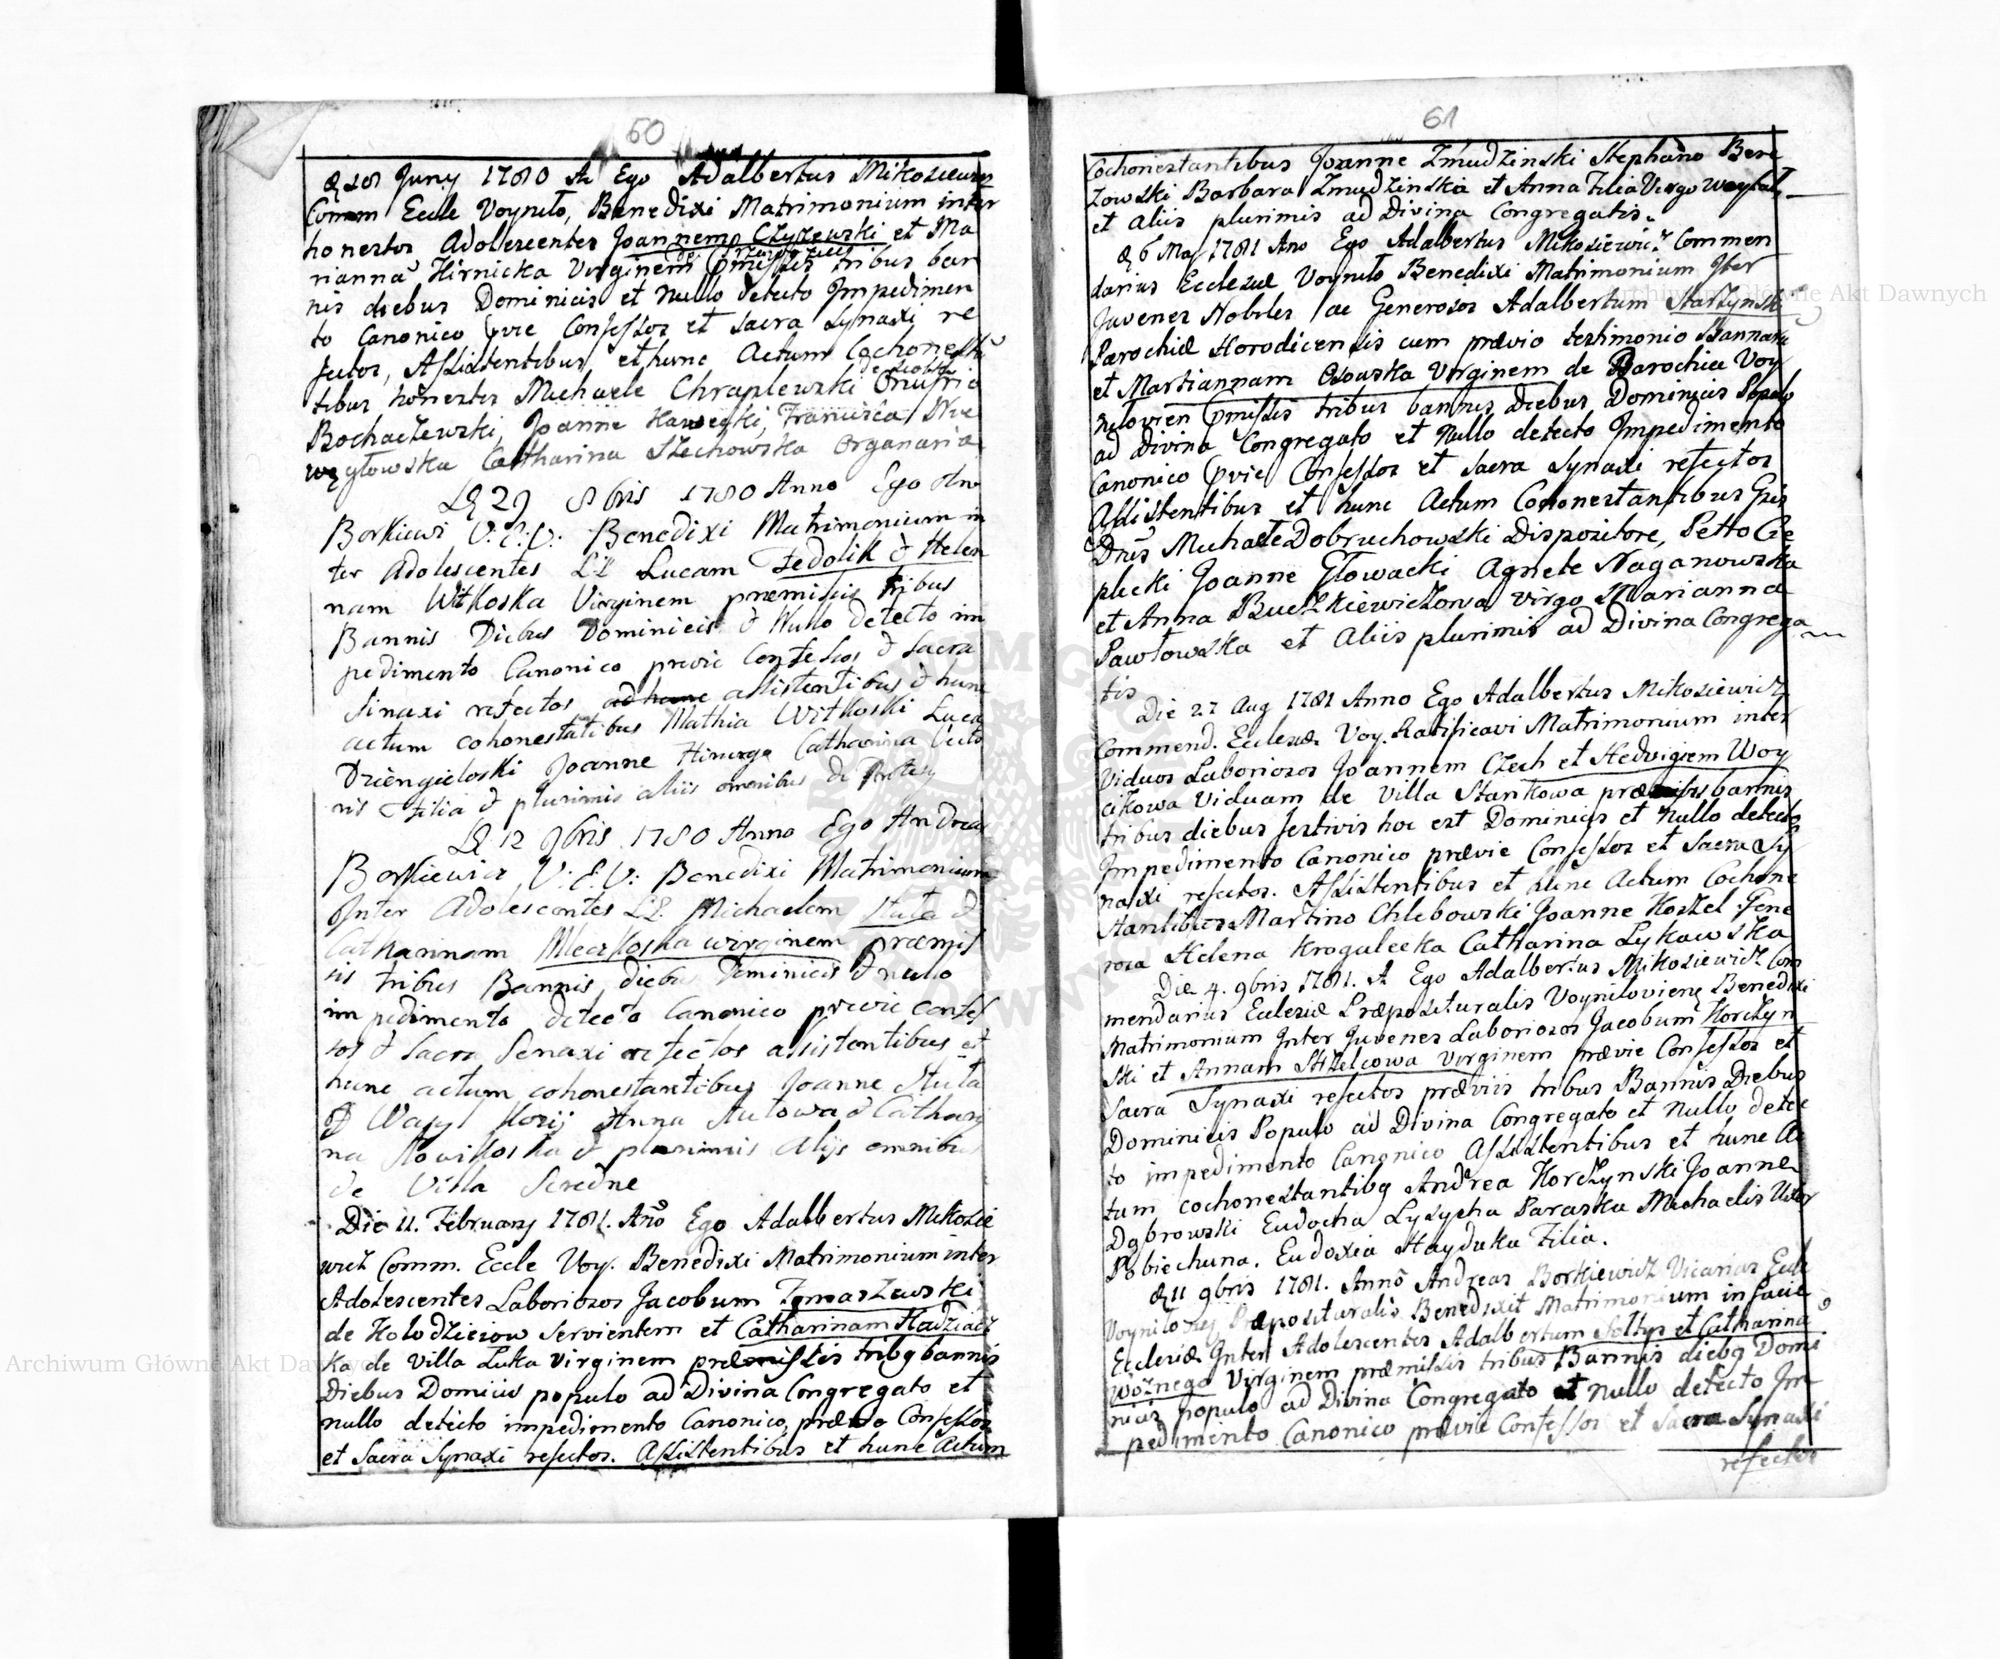 60
Juny 1780 A Ego Adalbertus Mikosiewicz
Comm Eccle Voynilo, Benedixi Matrimonium inter
honestos Adolescentes Joannem Czyzewski et Ma
rianna Hirnicka Virginem pmissis tribus ban
nis diebus Dominicis et Nullo detecto Impedimen
to Canonico pvie Confessos et sacra Synaxi re
fectos, Assistentibus et hunc Actum Cochonestã
tibus honestis Michaele Chraplewski Onufrio
Bochaczewski, Joanne Kawecki, Francisca Nie
węgłowska Catharina Stechowska Organaria
29 8bris 1780 Anno Ego An
Borkiewi V. E. V. Benedixi Matrimonium in
ter Adolescentes LL Lucam Fedolik & Hele
nam Witkoska Virginem præmissis tribus
Bannis Diebus Dominicis & Nullo detecto im
pedimento Canonico previe Confessos & Sacra
Sinaxi refectos ad hunc assistentibus & hunc
actum cohonestatibus Mathia Witkoski Luca
Dziengieloski Joanne Hirurgo Catharina
ris filia & plurimis aliis omnibus de
12 9bris 1780 Anno Ego Andreas
Borkiewicz V. E. V: Benedixi Matrimonium
Inter Adolescentes LL. Michaelem Stuta &
Catharinam Mleczkoska wirginem præmis
sis tribus Bannis diebus Dominicis & nullo
impedimento detecto Canonico previe confes
sos & Sacra Senaxi refectos assistentibus et
hunc actum cohonestantibus Joanne Stuta
& Wasyl Anna & Cathari
na & plurimis Alijs omnibus
de Villa Seredne
Die 11. February 1781. Año Ego Adalbertus Mikosie
wicz Comm. Eccle Voy. Benedixi Matrimonium inter
Adolescentes Laboriosos Jacobum Tomaszewski
de Holodziejow servientem et Catharinam Kadziacz
ka de Villa Luka Virginem præmissis tribg bannis
Diebus Domiiis populo ad Divina Congregato et
nullo detecto impedimento Canonico, Confessos
et Sacra Synaxi refectos. Assistentibus et hunc Actum
61
Cochonestantibus Joanne Zmudzinski Stephano Bere
zowski Barbara Zmudzinska et Anna Filia Virgo
et Aliis plurimis ad Divina Congregatis.
6 May 1781 Ano Ego Adalbertus Mikosiewicz Commen
darius Ecclesiæ Voynilo Benedixi Matrimonium Iter
Juvenes Nobiles ac Generosos Adalbertum Starzynski
Parochiæ Horodicensis cum prævio testimonio Bannaru
et Martiannam Osowska Virginem de Parochia Voy
nilovien pmissis tribus bannis diebus Dominicis Populo
ad Divina Congregato et Nullo detecto Impedimento
Canonico pvie Confessos et sacra Synaxi refectos
Assistentibus et hunc Actum Coconestantibus
Michaele Dobruchowski Dispositore, Petto Cie
plicki Joanne Głowacki Agnete Naganowska
et Anna Buczkiewiczowa Virgo Marianna
Pawłowska et Aliis plurimis ad Divina Congrega
tis
Die 27 Aug 1781 Anno Ego Adalbertus Mikosiewicz
Commend. Ecclesiæ Voy. Ratificavi Matrimonium inter
Viduos Laboriosos Joannem Czech et Hedvigiem Woy
cikowa Viduam de Villa Stankowa bannis
tribus diebus festivis hoc est Dominicis et Nullo detecto
Impedimento Canonico prævie Confessos et Sacra Sy
naxi refectos. Assistentibus et hunc Actum Cochone
stantibus Martino Chlebowski Joanne Koszel Gene
rosa Helena Krogulecka Catharina Lykawska
Die 4. 9bris 1781. A Ego Adalbertus Mikosiewicz Com
mendarius Ecclesiæ Præposituralis Voynilovienę Benedixi
Matrimonium Inter Juvenes Laboriosos Jacobum Korczyn
ski et Annam Strzelcowa Virginem prævie Confessos et
Sacra Synaxi refectos præviis tribus Bannis Diebus
Dominicis Populo ad Divina Congregato et Nullo detec
to impedimento Canonico Assistentibus et hunc Ac
tum cochonestantibg Andrea Korczynski Joanne
Dąbrowski Eudocha Lysycha Paraska Michaelis Uxor
Pobiechuna. Eudoxia Hayduka Filia.
11 9bris 1781. Anno Andreas Borkiewicz Vicarius Eccle
Præposituralis Benedixit Matrimonium in facie
Ecclesiæ Inter Adolescentes Adalbertum Sołtys et Catharina
Woznego Virginem præmissis tribus Bannis diebg Domi
nicis populo ad Divina Congregato et Nullo detecto Im
pedimento Canonico prævie Confessos et Sacra Synaxi
refectos
Archiwum Główne Akt Dawnych
Archiwum Główne Akt Dawnych